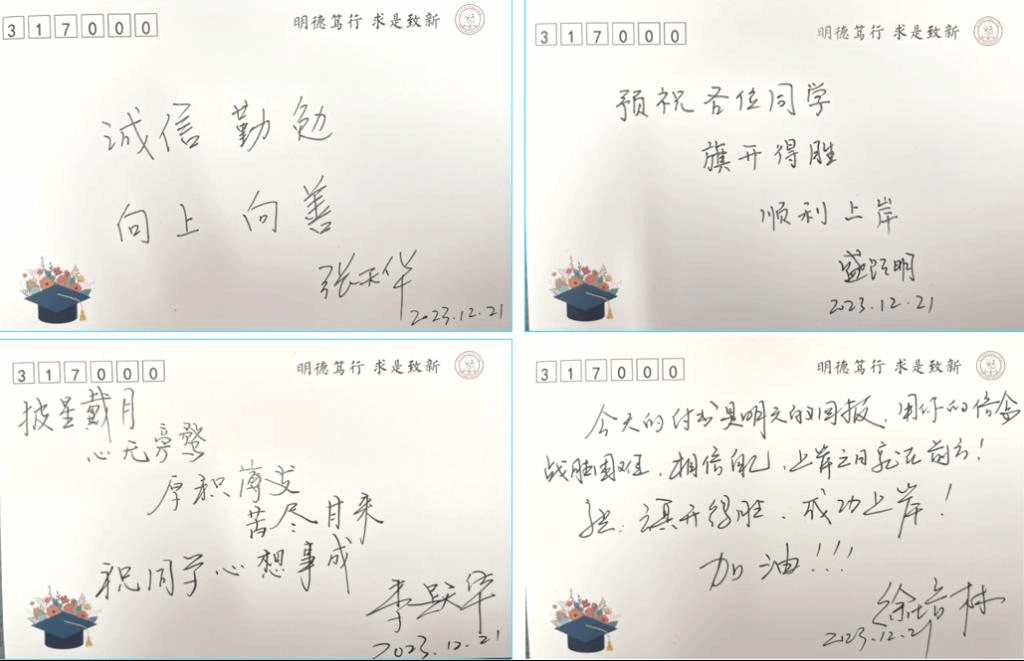 317000
明德笃行 求是致新
诚信 勤勉
向上 向善
张天华
2023.12.21
317000
明德笃行 求是致新
预祝各位同学
旗开得胜
顺利上岸
盛明
2023.12.21
317000
明德笃行 求是致新
披星戴月
心无旁骛
厚积薄发
苦尽甘来
祝同学心想事成
李跃华
2023.12.21
317000
明德笃行 求是致新
今天的付出是明天的回报,用你的信念
战胜困难,相信自己,上岸之日就在前方!
祝:旗开得胜,成功上岸!
加油!!!
徐培林
2023.12.21